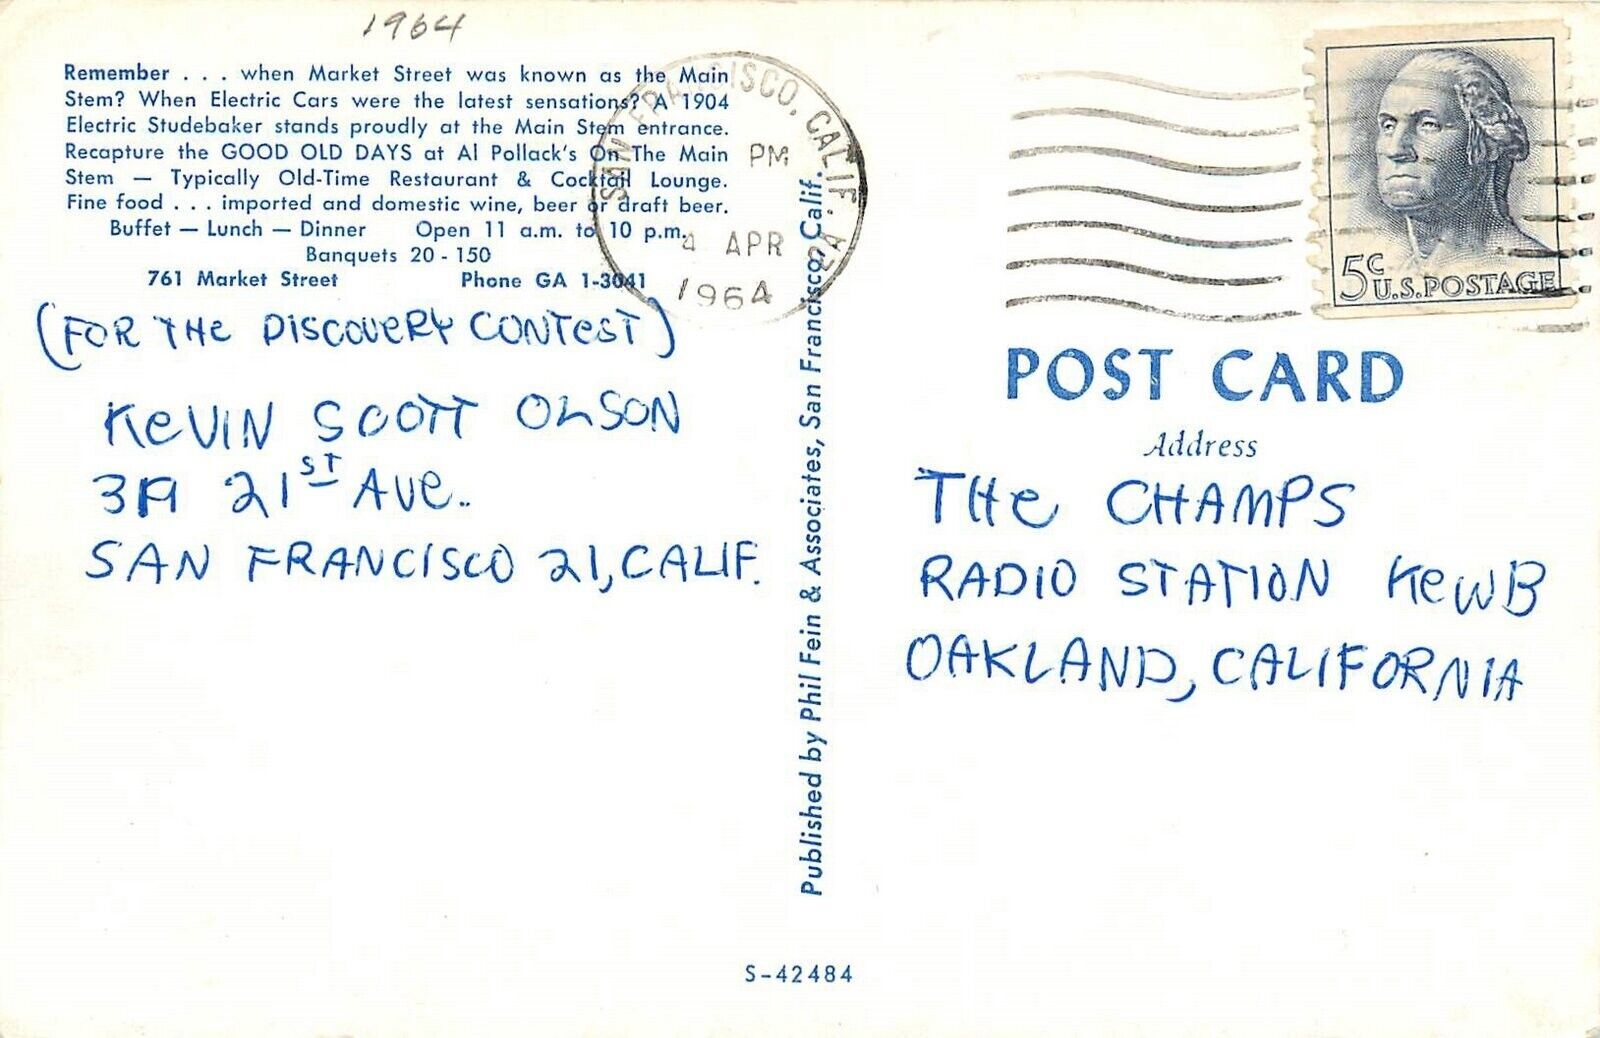 1964
Remember . . . when Market Street was known as the Main
Stem? When Electric Cars were the latest sensations? A 1904
Electric Studebaker stands proudly at the Main Stem entrance.
Recapture the GOOD OLD DAYS at Al Pollack's On The Main
Stem — Typically Old-Time Restaurant & Cocktail Lounge.
Fine food . . . imported and domestic wine, beer or draft beer.
Buffet — Lunch — Dinner Open 11 a.m. to 10 p.m.
Banquets 20 - 150
761 Market Street Phone GA 1-3041
(FOR THe DISCOVeRY CONTeST)
KeVIN SCOTT OLSON
21ST AVe.
SAN FRANCISCO 21, CALIF.
SAN FRANCISCO, CALIF.
PM
4 APR
1964
Published by Phil Fein & Associates, San Francisco, Calif.
5c
U.S. POSTAGE
POST CARD
Address
THe CHAMPS
RADIO STATION KeWB
OAKLAND, CALIFORNIA
S-42484